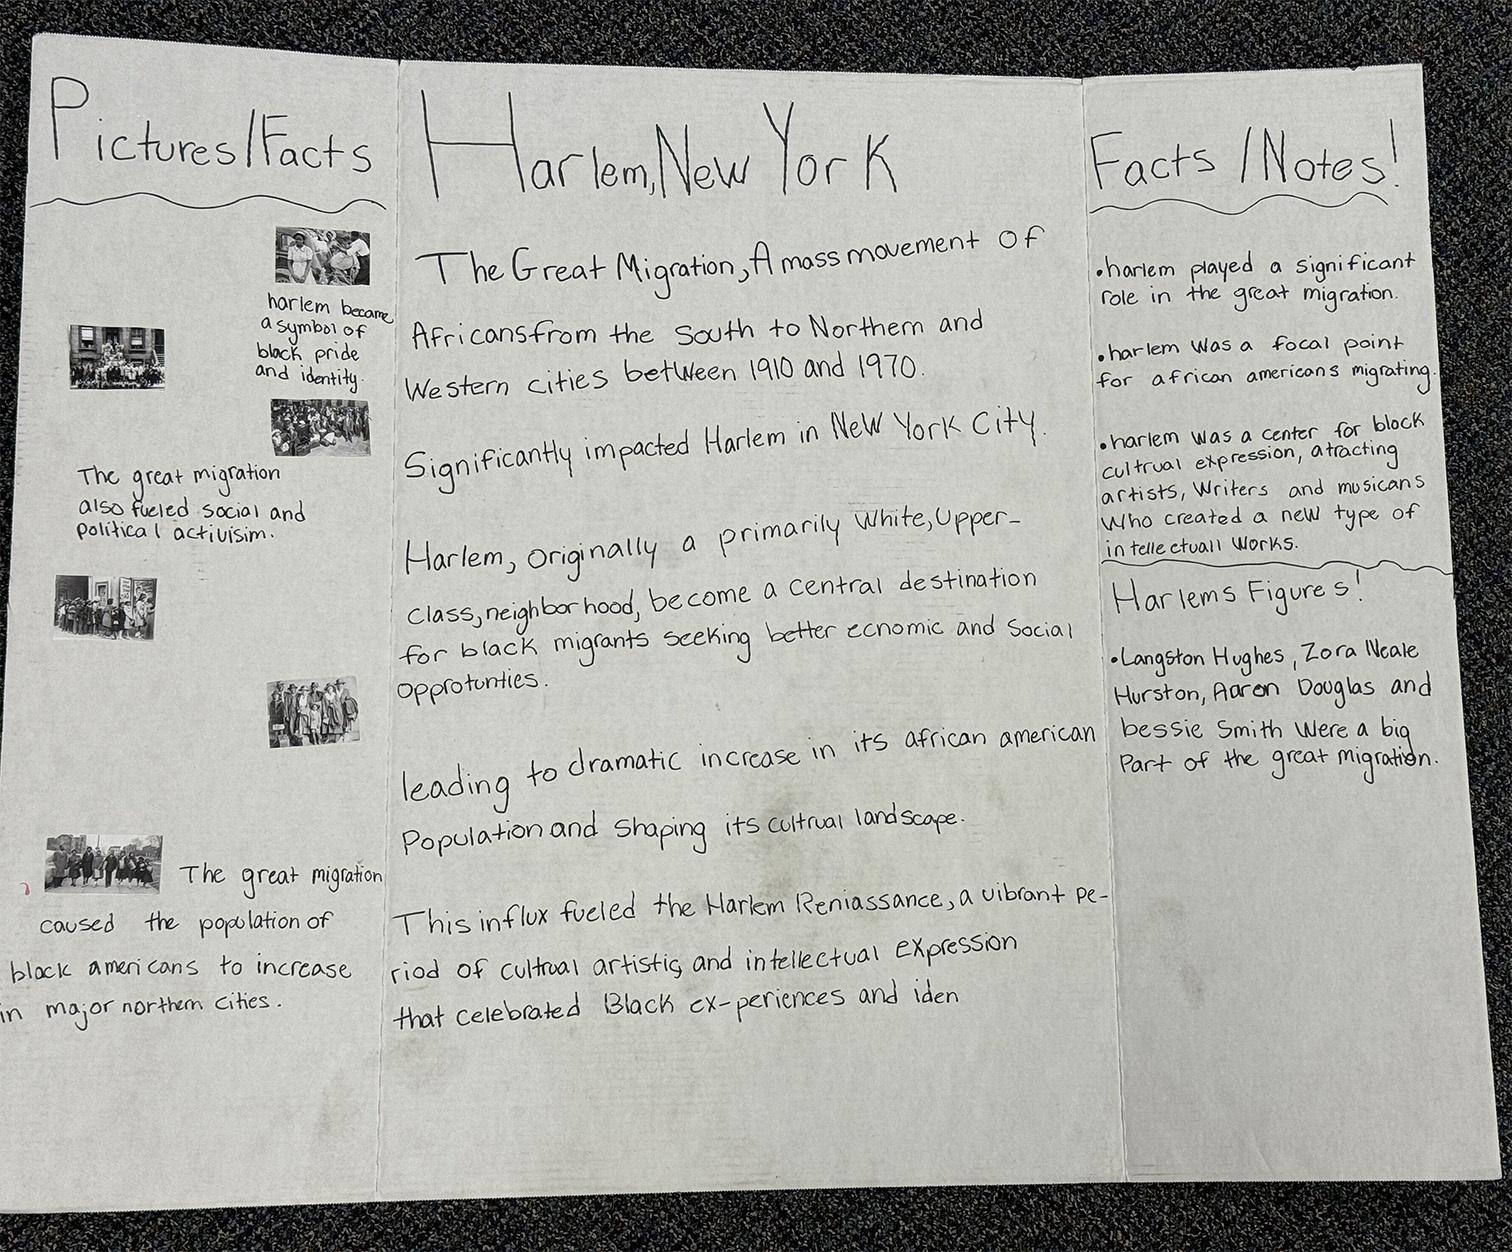 Pictures/Facts
harlem became
a symbol of
black pride
and identity.
The great migration
also fueled social and
political activisim.
The great migration
caused the population of
black americans to increase
in major northern cities.
Harlem, New York
The Great Migration, A mass movement of
Africans from the South to Northern and
Western cities between 1910 and 1970.
Significantly impacted Harlem in New York City.
Harlem, originally a primarily white, upper-
class, neighborhood, become a central destination
for black migrants seeking better ecnomic and social
opprotunties.
leading to dramatic increase in its african american
Population and shaping its cultrual landscape.
This influx fueled the Harlem Reniassance, a vibrant pe-
riod of cultrual artistic, and intellectual expression
that celebrated Black ex-periences and iden
Facts/Notes!
•harlem played a significant
role in the great migration.
•harlem was a focal point
for african americans migrating.
•harlem was a center for black
cultrual expression, atracting
artists, Writers and musicans
Who created a new type of
intellectuall works.
Harlems Figures!
•Langston Hughes, Zora Neale
Hurston, Aaron Douglas and
bessie Smith were a big
Part of the great migration.